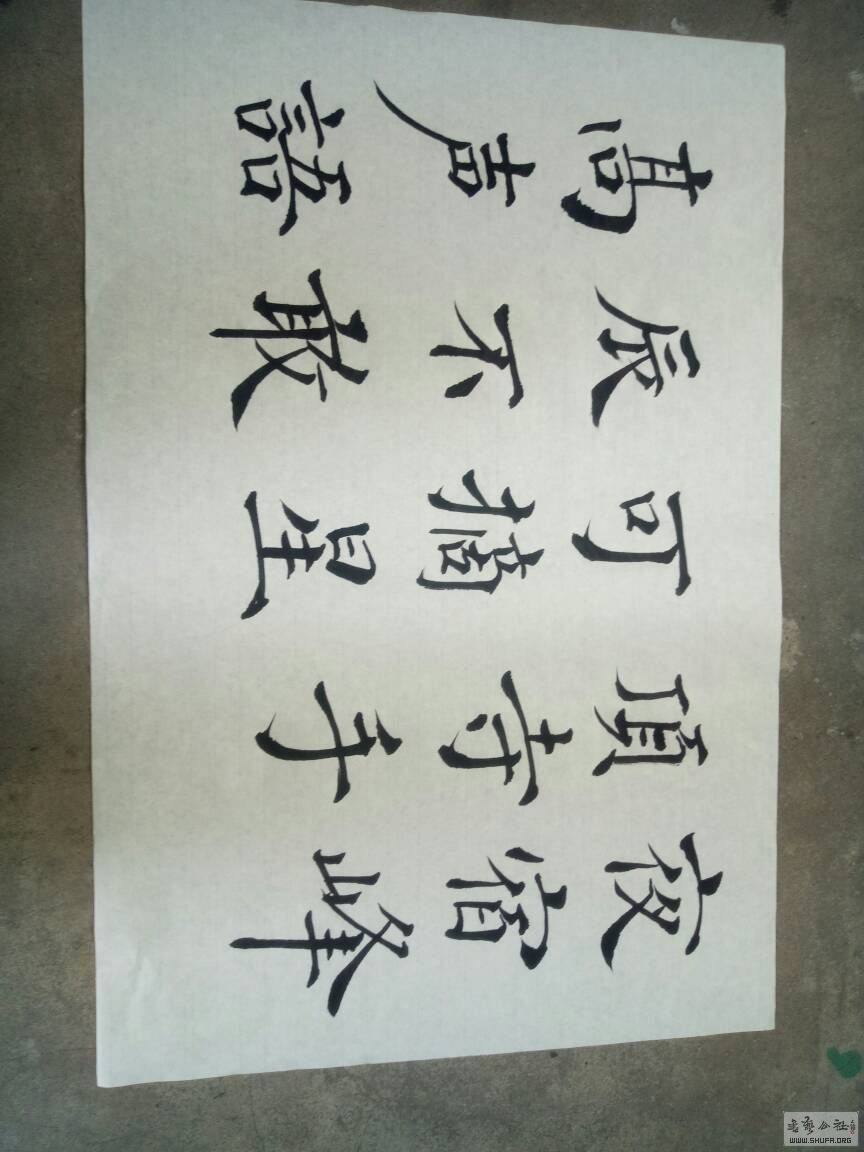 夜宿峰
頂寺手
可摘星
辰不敢
高声語
書藝公社
WWW.SHUFA.ORG